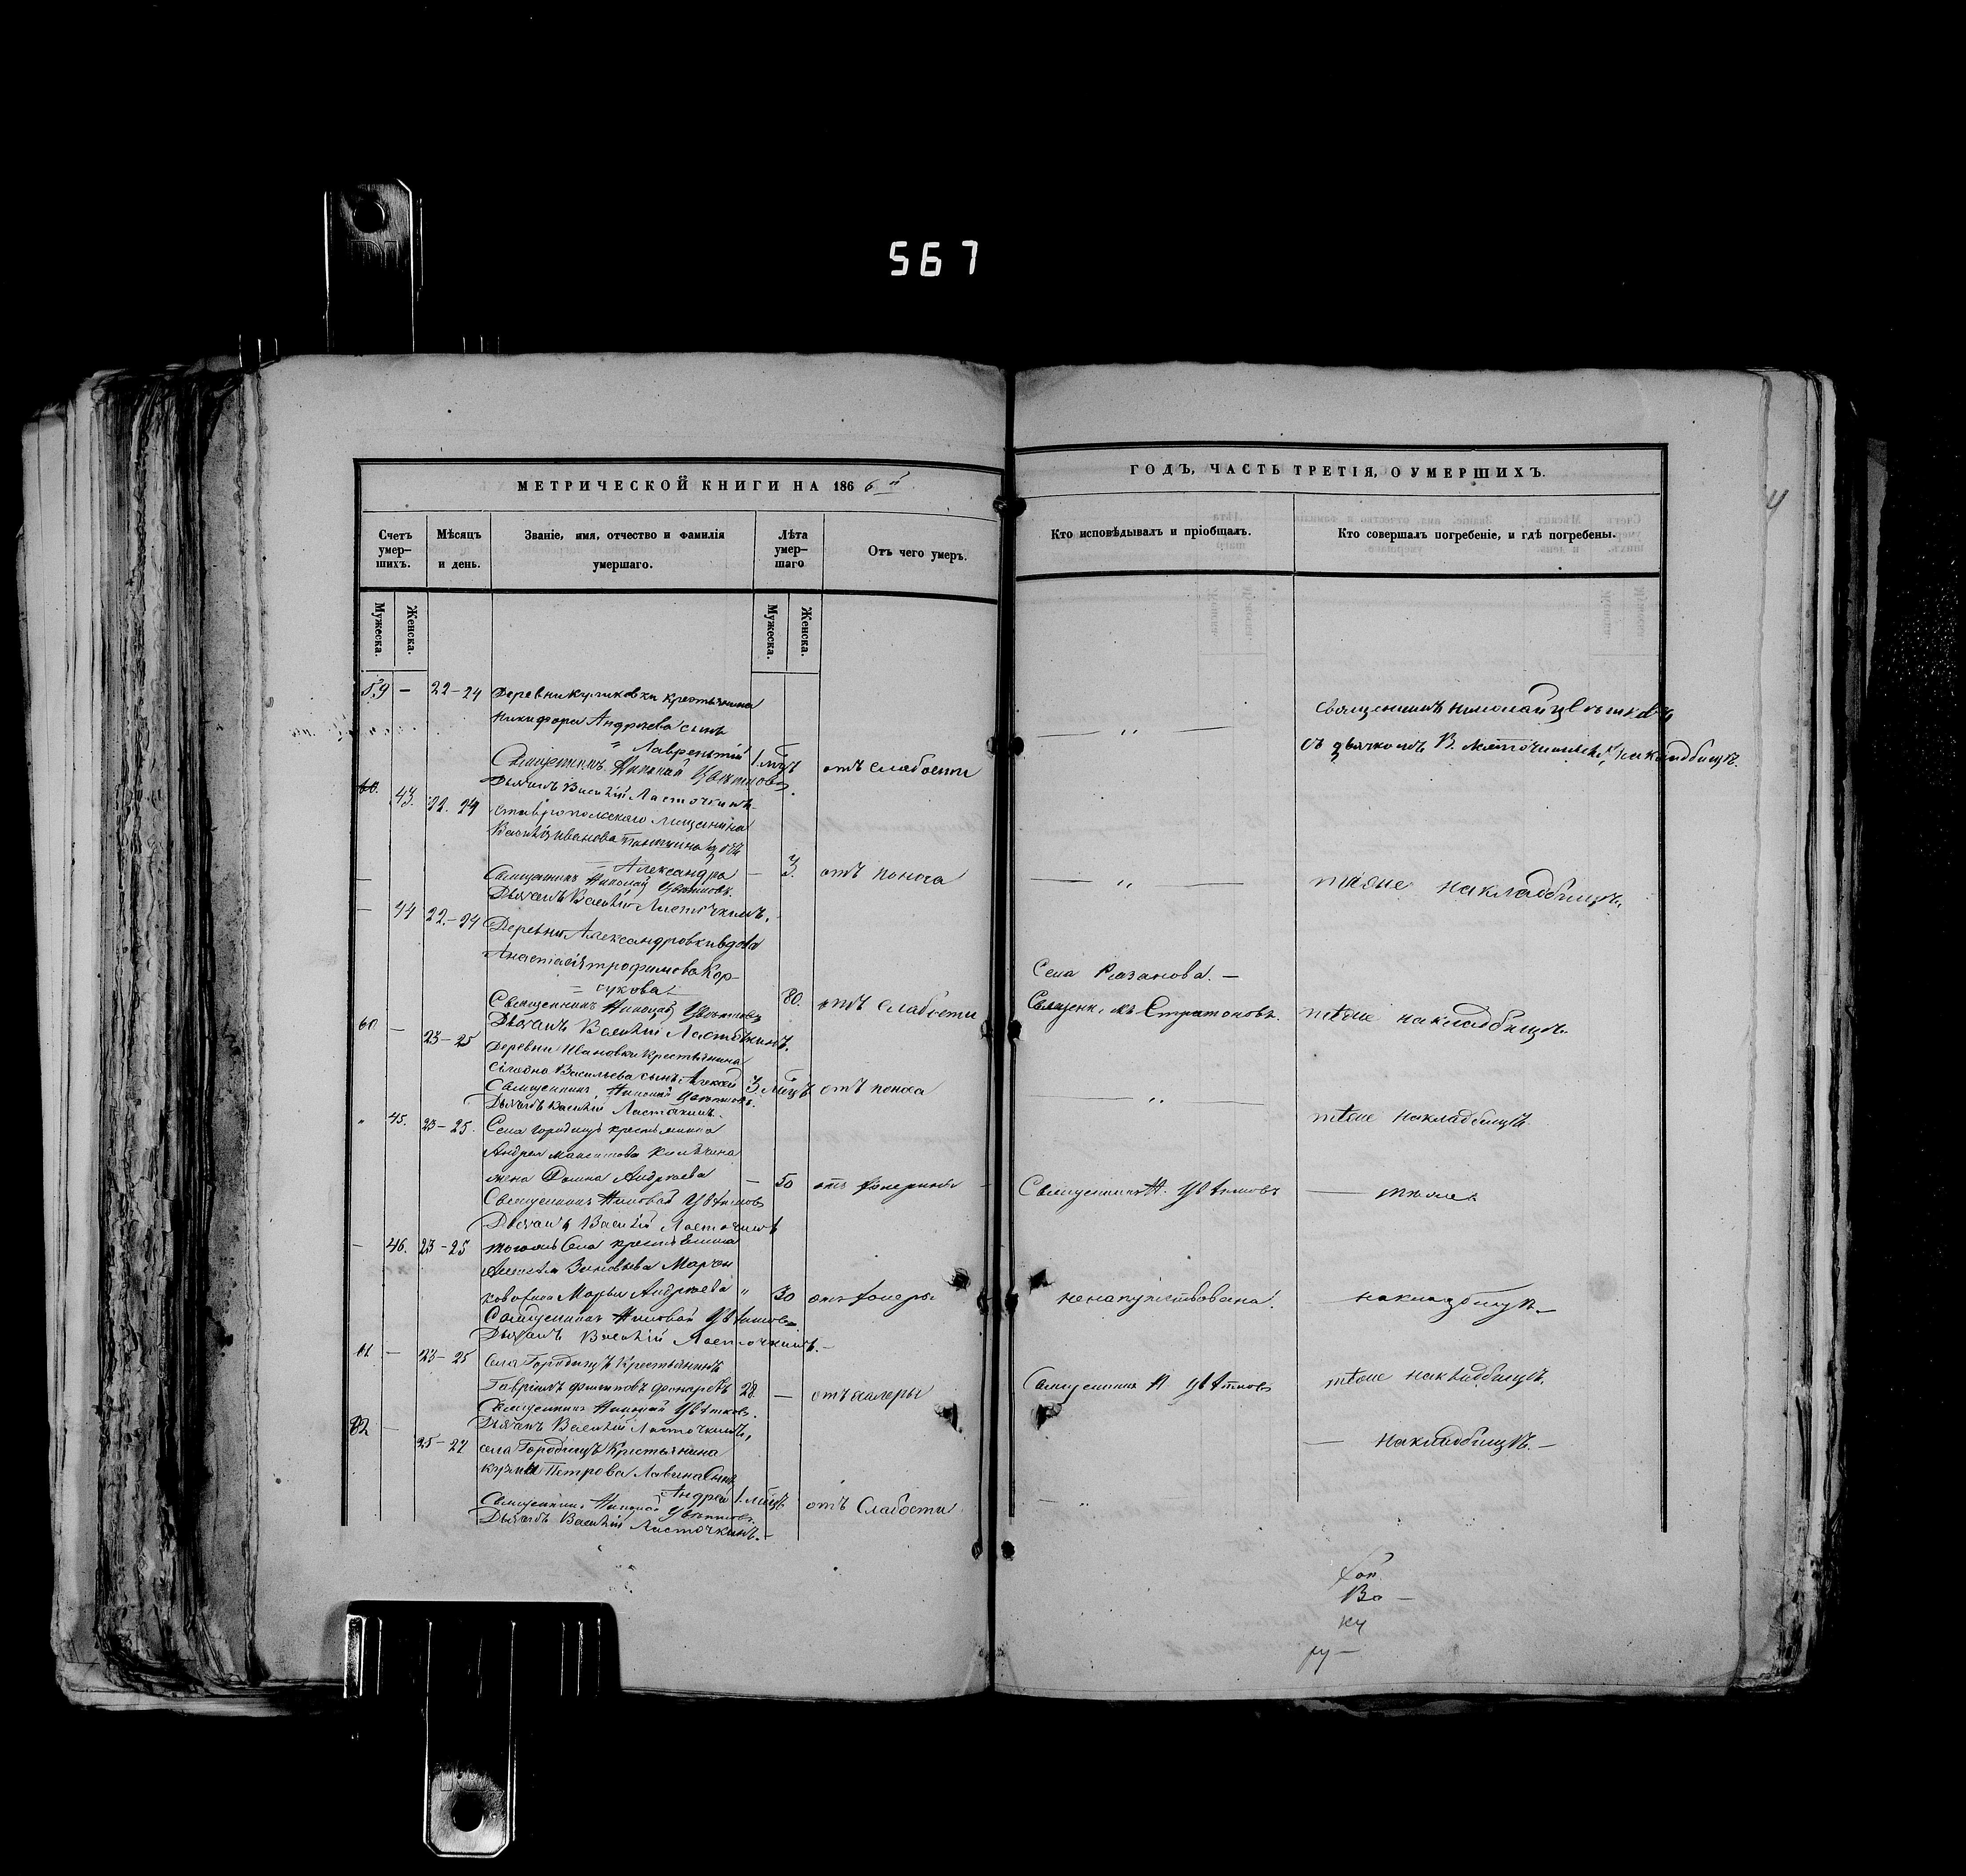 567
МЕТРИЧЕСКОЙ КНИГИ НА 1866 й
ГОДЪ, ЧАСТЬ ТРЕТІЯ, О УМЕРШИХЪ.
Счетъ умер-шихъ.
Мѣсяцъ и день.
Званіе, имя, отчество и фамилія умершаго.
Лѣта умер-шаго
Отъ чего умеръ.
Кто исповѣдывалъ и пріобщалъ.
Кто совершалъ погребеніе, и гдѣ погребены.
Мужеска.
Женска.
Мужеска.
Женска.
59 — 22-24 Деревни Куликовки крестьянина
Никифора Андреева сынъ
Лаврентій 1 мѣсъ отъ слабости
Священникъ Николай Цвѣтковъ
съ дьячкомъ В. Ласточкинымъ, на кладбищѣ.
Священникъ Николай Цвѣтковъ
Дьячекъ Василій Ласточкинъ
43. 22. 24 Ставропольскаго мещанина
Василія Иванова дочь
Александра — 3. отъ поноса
тѣже на кладбищѣ.
Священникъ Николай Цвѣтковъ.
Дьячекъ Василій Ласточкинъ.
— 44 22-24 Деревни Александровки вдова
Анастасія Трофимова Кор-
сукова 80. отъ слабости
Села Рязанова. —
Священникъ Стратоновъ. тѣже на кладбищѣ.
Священникъ Николай Цвѣтковъ
Дьячекъ Василій Ласточкинъ.
60 — 23-25 Деревни Ивановки Крестьянина
Васильева сынъ Алексѣй 3 мѣсъ отъ поноса
тѣже на кладбищѣ.
Священникъ Николай Цвѣтковъ.
Дьячекъ Василій Ласточкинъ.
" 45. 23-25. Села Городищъ крестьянина
Андрея
жена Домна Андреева — 50 отъ холеры
Священникъ Н. Цвѣтковъ — тѣже
Священникъ Николай Цвѣтковъ
Дьячекъ Василій Ласточкинъ
— 46. 23-25 тогожъ села крестьянина
Алексѣя Зиновьева
Марья Андреева " 30 отъ холеры
ненапутствована. на кладбищѣ. —
Священникъ Николай Цвѣтковъ
Дьячекъ Василій Ласточкинъ. —
61 — 23-25 Села Городищъ Крестьянинъ
Гавріилъ Филиповъ 28. — отъ холеры
Священникъ Н Цвѣтковъ тѣже на кладбищѣ.
Священникъ Николай Цвѣтковъ.
Дьячекъ Василій Ласточкинъ,
62 — 25-27 села Городищъ Крестьянина
Кузмы Петрова Лавина сынъ
Андрей 1. мѣсъ отъ слабости
— на кладбищѣ. —
Священникъ Николай Цвѣтковъ.
Дьячекъ Василій Ласточкинъ. —
Во —
ку
ру —